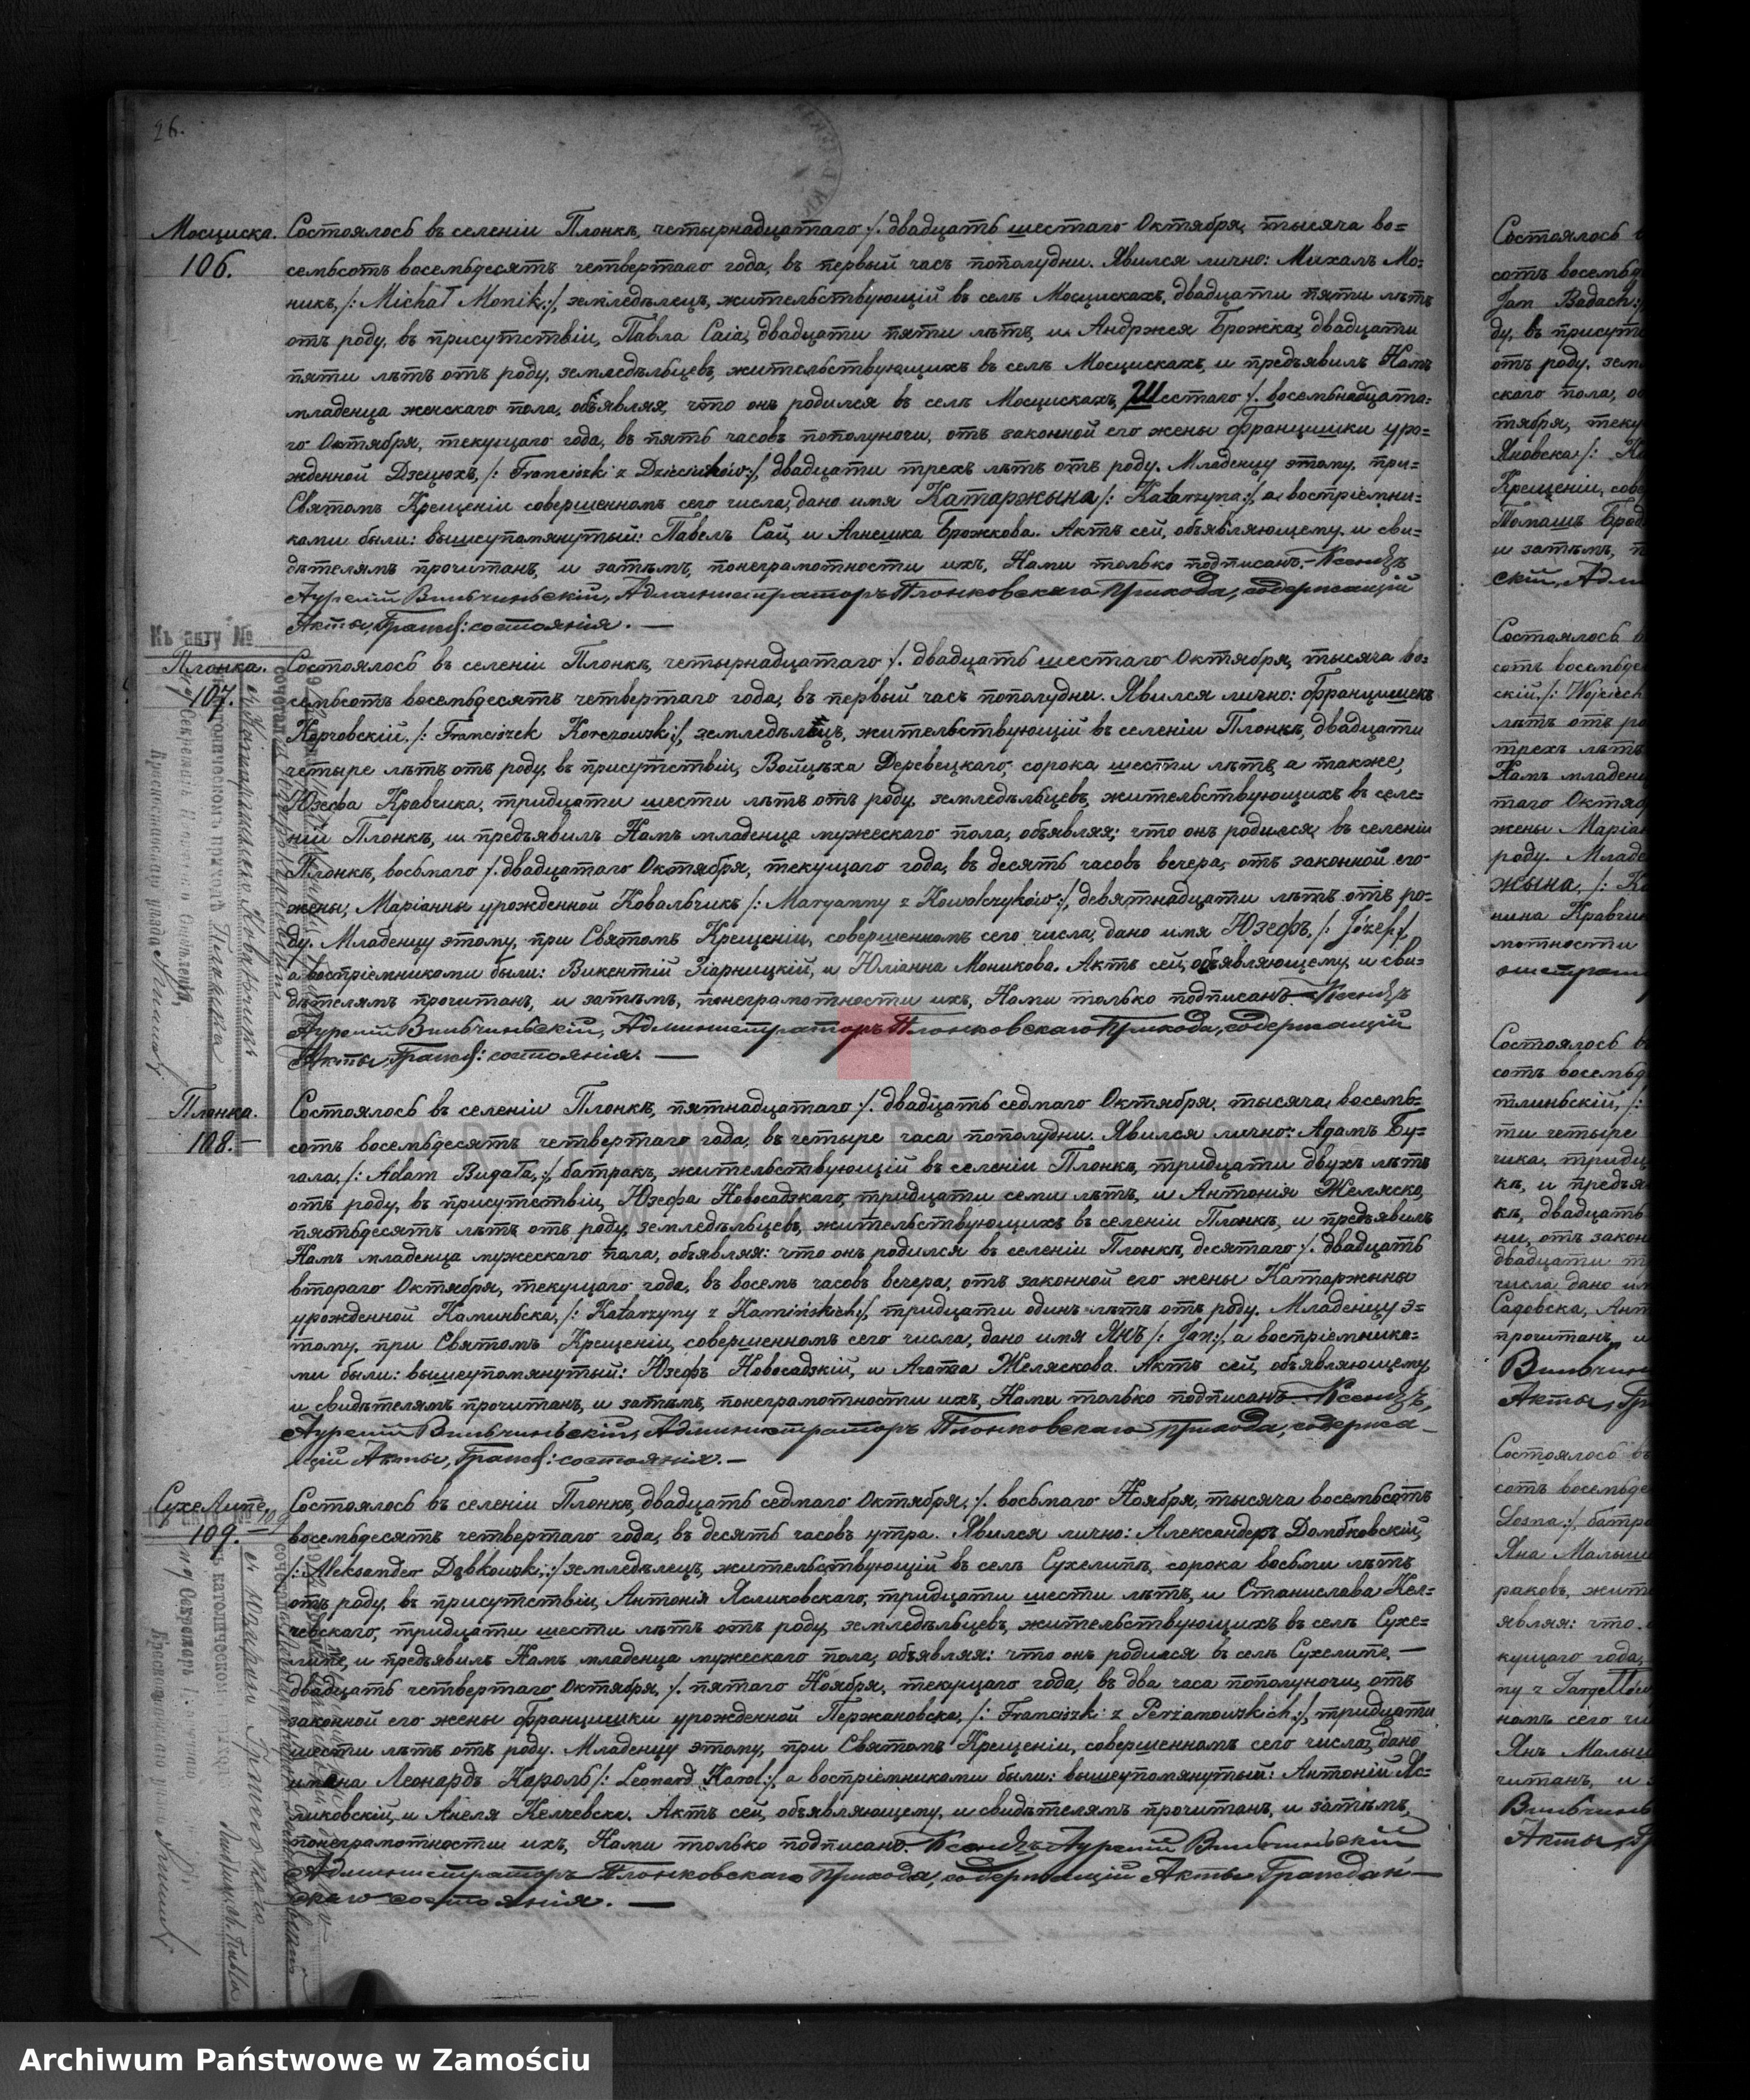 26.
Мосциска.
106.
Состоялось въ селеніи Плонкѣ, четырнадцатаго /. двадцать шестаго Октября, тысяча во=
семьсотъ восемьдесятъ четвертаго года, въ первый часъ пополудни. Явился лично: Михалъ Мо=
никъ, /: Michał Monik :/, земледѣлецъ, жительствующій въ селѣ Мосцискахъ, двадцати пяти лѣтъ
отъ роду, въ присутствіи, Павла Сая, двадцати пяти лѣтъ, и Андржея Брожка, двадцати
пяти лѣтъ отъ роду, земледѣльцевъ, жительствующихъ въ селѣ Мосцискахъ, и предъявилъ Намъ
младенца женскаго пола, объявляя, что онъ родился въ селѣ Мосцискахъ, Шестаго /. восемьнадцата=
го Октября, текущаго года, въ пять часовъ пополуночи, отъ законной его жены Францишки уро=
жденной Дзецюхъ, /: Franciszk: z Dzieciuchów :/, двадцати трехъ лѣтъ отъ роду. Младенцу этому, при=
Святомъ Крещеніи совершенномъ сего числа, дано имя Катаржына /: Katarzyna :/, а воспріемни=
ками были: вышеупомянутый: Павелъ Сай, и Агнешка Брожкова. Актъ сей, объявляющему, и сви=
дѣтелямъ прочитанъ, и затѣмъ, понеграмотности ихъ, Нами только подписанъ. Ксендзъ
Аурелій Вильчиньскій, Администраторъ Плонковскаго Прихода, содержащій
Акты, Гражд: состоянія. —
Къ акту №
Плонка.
107.
Состоялось въ селеніи Плонкѣ, четырнадцатаго /. двадцать шестаго Октября, тысяча во=
семьсотъ восемьдесятъ четвертаго года, въ первый часъ пополудни. Явился лично: Францишекъ
Корчовскій, /: Franciszek Korczowski :/, земледѣлецъ, жительствующій въ селеніи Плонкѣ, двадцати
четыре лѣтъ отъ роду, въ присутствіи, Войцѣха Деревецкаго, сорока шести лѣтъ, а также,
Юзефа Кравчика, тридцати шести лѣтъ отъ роду, земледѣльцевъ, жительствующихъ въ селе=
ніи Плонкѣ, и предъявилъ Намъ младенца мужескаго пола, объявляя; что онъ родился, въ селеніи
Плонкѣ, восьмаго /. двадцатаго Октября, текущаго года, въ десять часовъ вечера, отъ законной его
жены, Маріанны урожденной Ковальчикъ /: Maryanny z Kowalczyków :/, девятнадцати лѣтъ отъ ро=
ду. Младенцу этому, при Святомъ Крещеніи, совершенномъ сего числа, дано имя Юзефъ, /: Józef /,
а воспріемниками были: Викентій Зіарницкій, и Юліанна Моникова. Актъ сей, объявляющему, и сви=
дѣтелямъ прочитанъ, и затѣмъ, понеграмотности ихъ, Нами только подписанъ. Ксендзъ
Аурелій Вильчиньскій, Администраторъ Плонковскаго Прихода, содержащій
Акты, Гражд: состоянія. —
Плонка.
108. —
Состоялось въ селеніи Плонкѣ, пятнадцатаго /. двадцать седмаго Октября, тысяча восемь=
сотъ восемьдесятъ четвертаго года, въ четыре часа пополудни. Явился лично: Адамъ Бу=
гала, /: Adam Bugała, :/, батракъ, жительствующій въ селеніи Плонкѣ, тридцати двухъ лѣтъ
отъ роду, въ присутствіи, Юзефа Новосадзкаго, тридцати семи лѣтъ, и Антонія Желяско,
пятьдесятъ лѣтъ отъ роду, земледѣльцевъ, жительствующихъ въ селеніи Плонкѣ, и предъявилъ
Намъ младенца мужескаго пола, объявляя: что онъ родился въ селеніи Плонкѣ, десятаго /. двадцать
втораго Октября, текущаго года, въ восемь часовъ вечера, отъ законной его жены Катаржыны
урожденной Каминьска, /: Katarzyny z Kamińskich :/, тридцати одинъ лѣтъ отъ роду. Младенцу э=
тому, при Святомъ Крещеніи, совершенномъ сего числа, дано имя Янъ /: Jan :/, а воспріемника=
ми были: вышеупомянутый: Юзефъ Новосадзкій, и Агата Желяскова. Актъ сей, объявляющему,
и свидѣтелямъ прочитанъ, и затѣмъ, понеграмотности ихъ, Нами только подписанъ. Ксендзъ,
Аурелій Вильчиньскій, Администраторъ Плонковскаго Прихода, содержа-
щій Акты, Гражд: состоянія. —
Сухе Липе,
109. —
Состоялось въ селеніи Плонкѣ, двадцать седмаго Октября, /. восьмаго Ноября, тысяча восемьсотъ
восемьдесятъ четвертаго года, въ десять часовъ утра. Явился лично: Александеръ Домбковскій,
/: Aleksander Dąbkowsk: :/ земледѣлецъ, жительствующій въ селѣ Сухелипѣ, сорока восьми лѣтъ
отъ роду, въ присутствіи, Антонія Ясликовскаго, тридцати шести лѣтъ, и Станислава Кел=
чевскаго, тридцати шести лѣтъ отъ роду, земледѣльцевъ, жительствующихъ въ селѣ Сухе=
липе, и предъявилъ Намъ младенца мужескаго пола, объявляя: что онъ родился въ селѣ Сухелипе, —
двадцать четвертаго Октября, /. пятаго Ноября, текущаго года, въ два часа пополуночи, отъ
законной его жены Францишки урожденной Пержановска, /: Franciszk: z Perżanowskich :/, тридцати
шести лѣтъ отъ роду. Младенцу этому, при Святомъ Крещеніи, совершенномъ сего числа, дано
имяна Леонардъ Кароль /: Leonard Karol :/, а воспріемниками были: вышеупомянутый: Антоній Яс=
ликовскій, и Анеля Келчевска. Актъ сей, объявляющему, и свидѣтелямъ прочитанъ, и затѣмъ,
понеграмотности ихъ, Нами только подписанъ. Ксендзъ Аурелій Вильчиньскій
Администраторъ Плонковскаго Прихода, содержащій Акты Граждан—
скаго состоянія. —
Состоялось
сотъ восемьд
Jan Badach :/
ду, въ присутс
отъ роду, земл
скаго пола, о
тября, теку
Яновска /: K
Крещеніи, сове
Томашъ Брод
и затѣмъ, п
скій, Адми
Состоялось
сотъ восемьде
скій, /: Wojciech
лѣтъ отъ ро
трехъ лѣтъ
Намъ младен
таго Октяб
жены Маріан
роду. Младе
жына, /: Ka
нина Кравчи
мотности
Состоялось в
сотъ восемьд
тлиньскій, /:
ти четыре
чика, тридц
кѣ, и предъя
кѣ, двадцать
ни, отъ закон
двадцати т
числа, дано им
Садовска, Ант
прочитанъ, и
Вильчинь
Акты, Гр
Состоялось въ
сотъ восемьде
Lesna :/, батра
Яна Малыш
раковъ, жите
являя: что
кущаго года,
ny z Targońsk
номъ сего чи
Янъ Малыш
читанъ, и з
Вильчинь
Акты, Гр
ARCHIWUM PAŃSTWOWE
W ZAMOŚCIU
Archiwum Państwowe w Zamościu